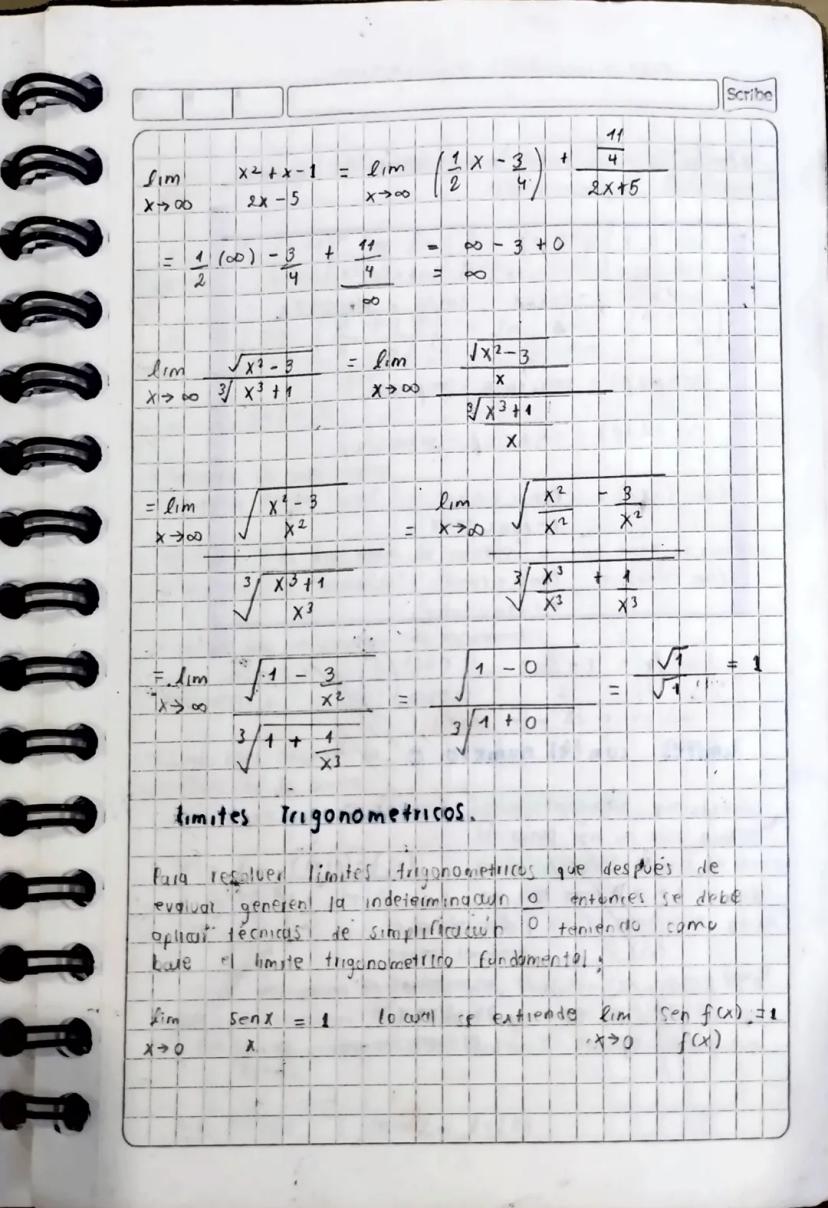 Scribe
lim x→∞ x²+x-1 / 2x-5 = lim x→∞ (1/2 x - 3/4) + 11/4 / 2x+5
= 1/2 (∞) - 3/4 + 11/4 / ∞ = ∞ - 3 + 0
= ∞
lim x→∞ √x²-3 / ∛x³+1 = lim x→∞ √x²-3 / x / ∛x³+1 / x
= lim x→∞ √x²-3 / x² / ∛x³+1 / x³ = lim x→∞ √x²/x² - 3/x² / ∛x³/x³ + 1/x³
= lim x→∞ √1 - 3/x² / ∛1 + 1/x³ = √1 - 0 / ∛1 + 0 = √1 / √1 = 1
Limites Trigonometricos.
Para resolver limites trigonometricos que después de
evaluar generen la indeterminación 0/0 entonces se debe
aplicar técnicas de simplificación teniendo como
base el limite trigonometrico fundamental:
lim x→0 sen x / x = 1 lo cual se extiende lim x→0 sen f(x) / f(x) = 1